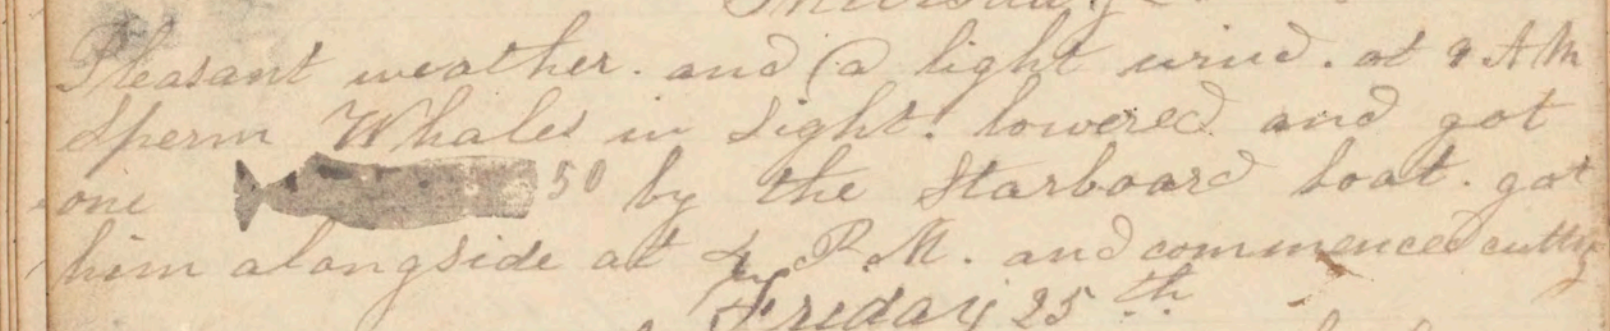 Thursday
Pleasant weather. and a light wind. at 9 AM
Sperm Whales in sight. lowered and got
one 50 by the Starboard boat. got
him alongside at 4 P.M. and commenced cutting
Friday 25th